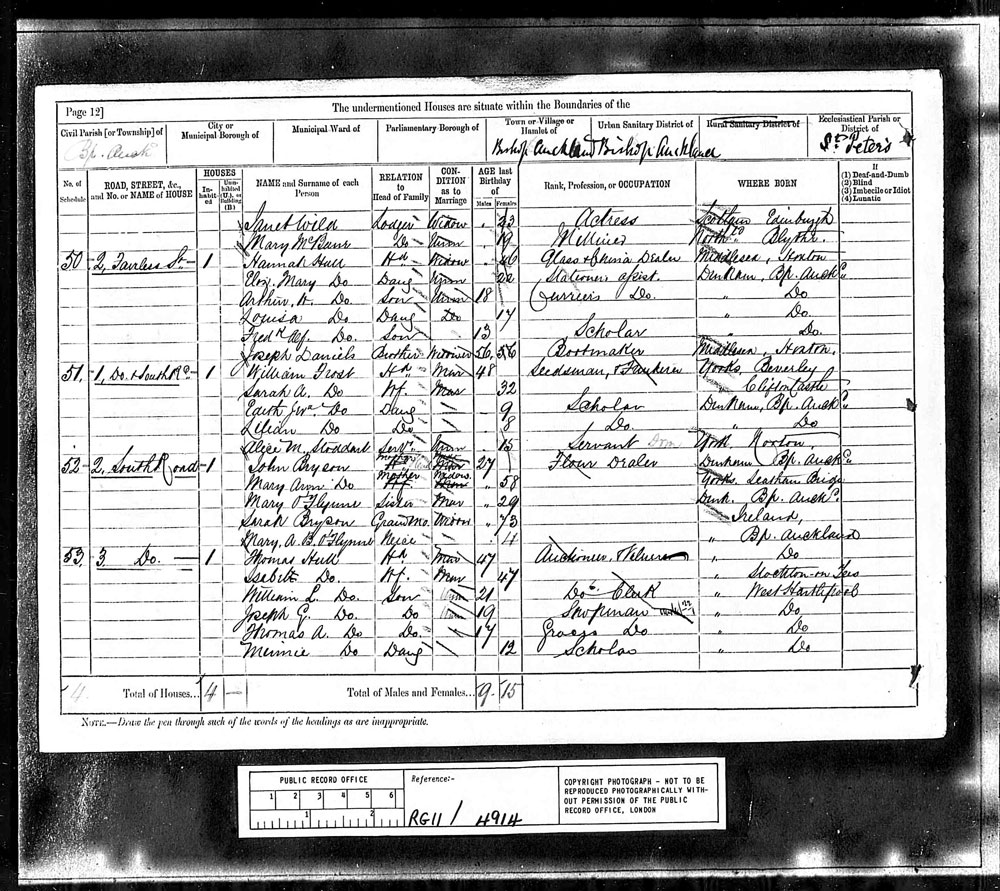 Page 12]
The undermentioned Houses are situate within the Boundaries of the
Civil Parish [or Township] of
City or Municipal Borough of
Municipal Ward of
Parliamentary Borough of
Town or Village or Hamlet of
Urban Sanitary District of
Rural Sanitary District of
Ecclesiastical Parish or District of
Bp. Auck
Bishop Auckland Bishop Auckland
St. Peters
No. of Schedule
ROAD, STREET, &c., and No. or NAME of HOUSE
HOUSES
Inhabited
Uninhabited (U.), or Building (B)
NAME and Surname of each Person
RELATION to Head of Family
CONDITION as to Marriage
AGE last Birthday of
Males Females
Rank, Profession, or OCCUPATION
WHERE BORN
If
(1) Deaf-and-Dumb
(2) Blind
(3) Imbecile or Idiot
(4) Lunatic
Janet Wild Lodger Widow 23 Actress Scotland Edinburgh
Mary Do Unm 19 Milliner North'd Blythe
50 2, Fairless St. 1 Hannah Hull Hd Widow 46 Glass & China Dealer Middlesex, Hoxton
Eliz. Mary Do Daug Unm 22 Stationers assist. Durham, Bp. Auckd
Arthur H. Do. Son Unm 18 Curriers Do. " Do
Louisa Do Daug Do 17 " Do.
Fredk Alf. Do. Son 13 Scholar " Do.
Joseph Daniels Brother Widower 56 56 Bootmaker Middlesex, Hoxton.
51 1, Do. & South Rd 1 William Frost Hd Mar 48 Seedsman, & Yorks, Beverley
Sarah A. Do Wf. Mar 32 " Clifton Castle
Edith Do Daug 9 Scholar Durham, Bp. Auckd
Lilian Do Do 8 Do. " Do
Alice M. Stoddart Servt Unm 15 Servant Dom York. Norton
52 2, South Road 1 John Bryson Hd 27 Flour Dealer Durham Bp. Auckd
Mary Ann Do Mother Widow 58 Yorks. Leatham Bridge
Mary O'Flynne Sister Mar 29 Durh. Bp. Auckd
Sarah Bryson Grandmo. Widow 73 Ireland,
Mary, A. B. O'Flynne Neice 4 " Bp. Auckland
53 3 Do. 1 Thomas Hull Hd Mar 47 Auctioneer & Valuer " Do
Isabella Do. Wf. Mar 47 " Stockton-on Tees
William L. Do. Son Unm 21 Do Clerk " West Hartlepool
Joseph G. Do. Do Unm 19 Shopman " Do
Thomas A. Do Do. 17 Grocers Do " Do
Meinnie Do Daug 12 Scholar " Do
4 Total of Houses... 4 — Total of Males and Females... 9 15
NOTE.—Draw the pen through such of the words of the headings as are inappropriate.
PUBLIC RECORD OFFICE
1 2 3 4 5 6
1 2
Reference:-
RG11 / 4914
COPYRIGHT PHOTOGRAPH - NOT TO BE
REPRODUCED PHOTOGRAPHICALLY WITH-
OUT PERMISSION OF THE PUBLIC
RECORD OFFICE, LONDON